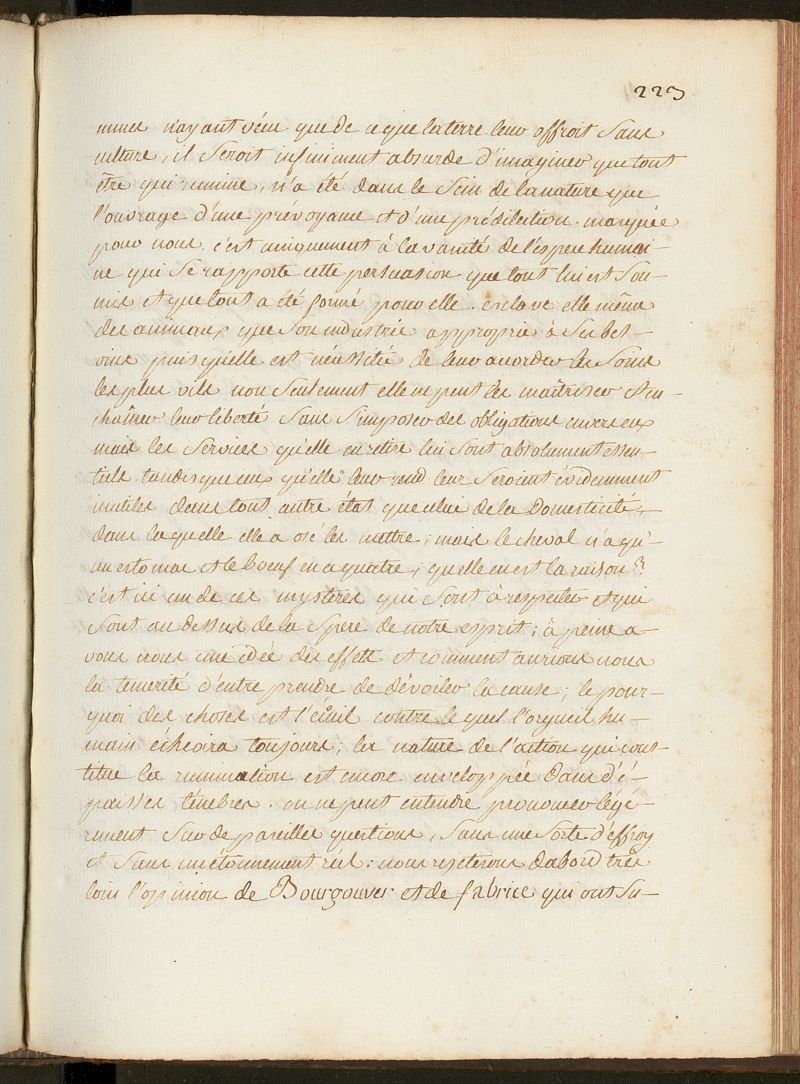 223
mines n'ayant vécu que de ce que la terre leur offroit sans
culture, il seroit infiniment absurde d'imaginer que tout
être qui rumine, n'a été dans le sein de la nature que
l'ouvrage d'une prévoyance et d'une prédilection marquée
pour nous. c'est uniquement à la vanité de l'espece humai-
ne qui se rapporte cette persuasion que tout lui est sou-
mis et que tout a été formé pour elle. esclave elle même
des animaux que son industrie approprie à ses bes-
oins puis qu'elle est nécessitée de leur accorder les soins
les plus vils non seulement elle ne peut les maitriser et en-
chaîner leur liberté sans s'imposer des obligations envers eux
mais les services qu'elle en retire lui sont absolument essen-
tiels tandis que ceux qu'elle leur rend leur seroient évidemment
inutiles dans tout autre état que celui de la Domesticité,
dans laquelle elle a osé les mettre; mais le cheval n'a qu'
un estomac et le boeuf en a quatre; quelle en est la raison?
c'est ici un de ces mysteres qui sont à respecter et qui
sont au dessus de la spere de notre esprit; à peine a-
vons nous une idée des effets et comment aurions nous
la temerité d'entre prendre de dévoiler la cause; le pour-
quoi des choses est l'écüil contre le quel l'orgueil hu-
main échoira toujours; la nature de l'action qui cons-
titue la rumination est encore enveloppée dans d'é-
paisses ténebres. on ne peut entendre prononcer légé-
rement sur de pareilles questions, sans une sorte d'effroy
et sans un étonnement réel: nous rejeterons dabord très
loin l'opinion de Bourgouver et de fabrice qui ont su-